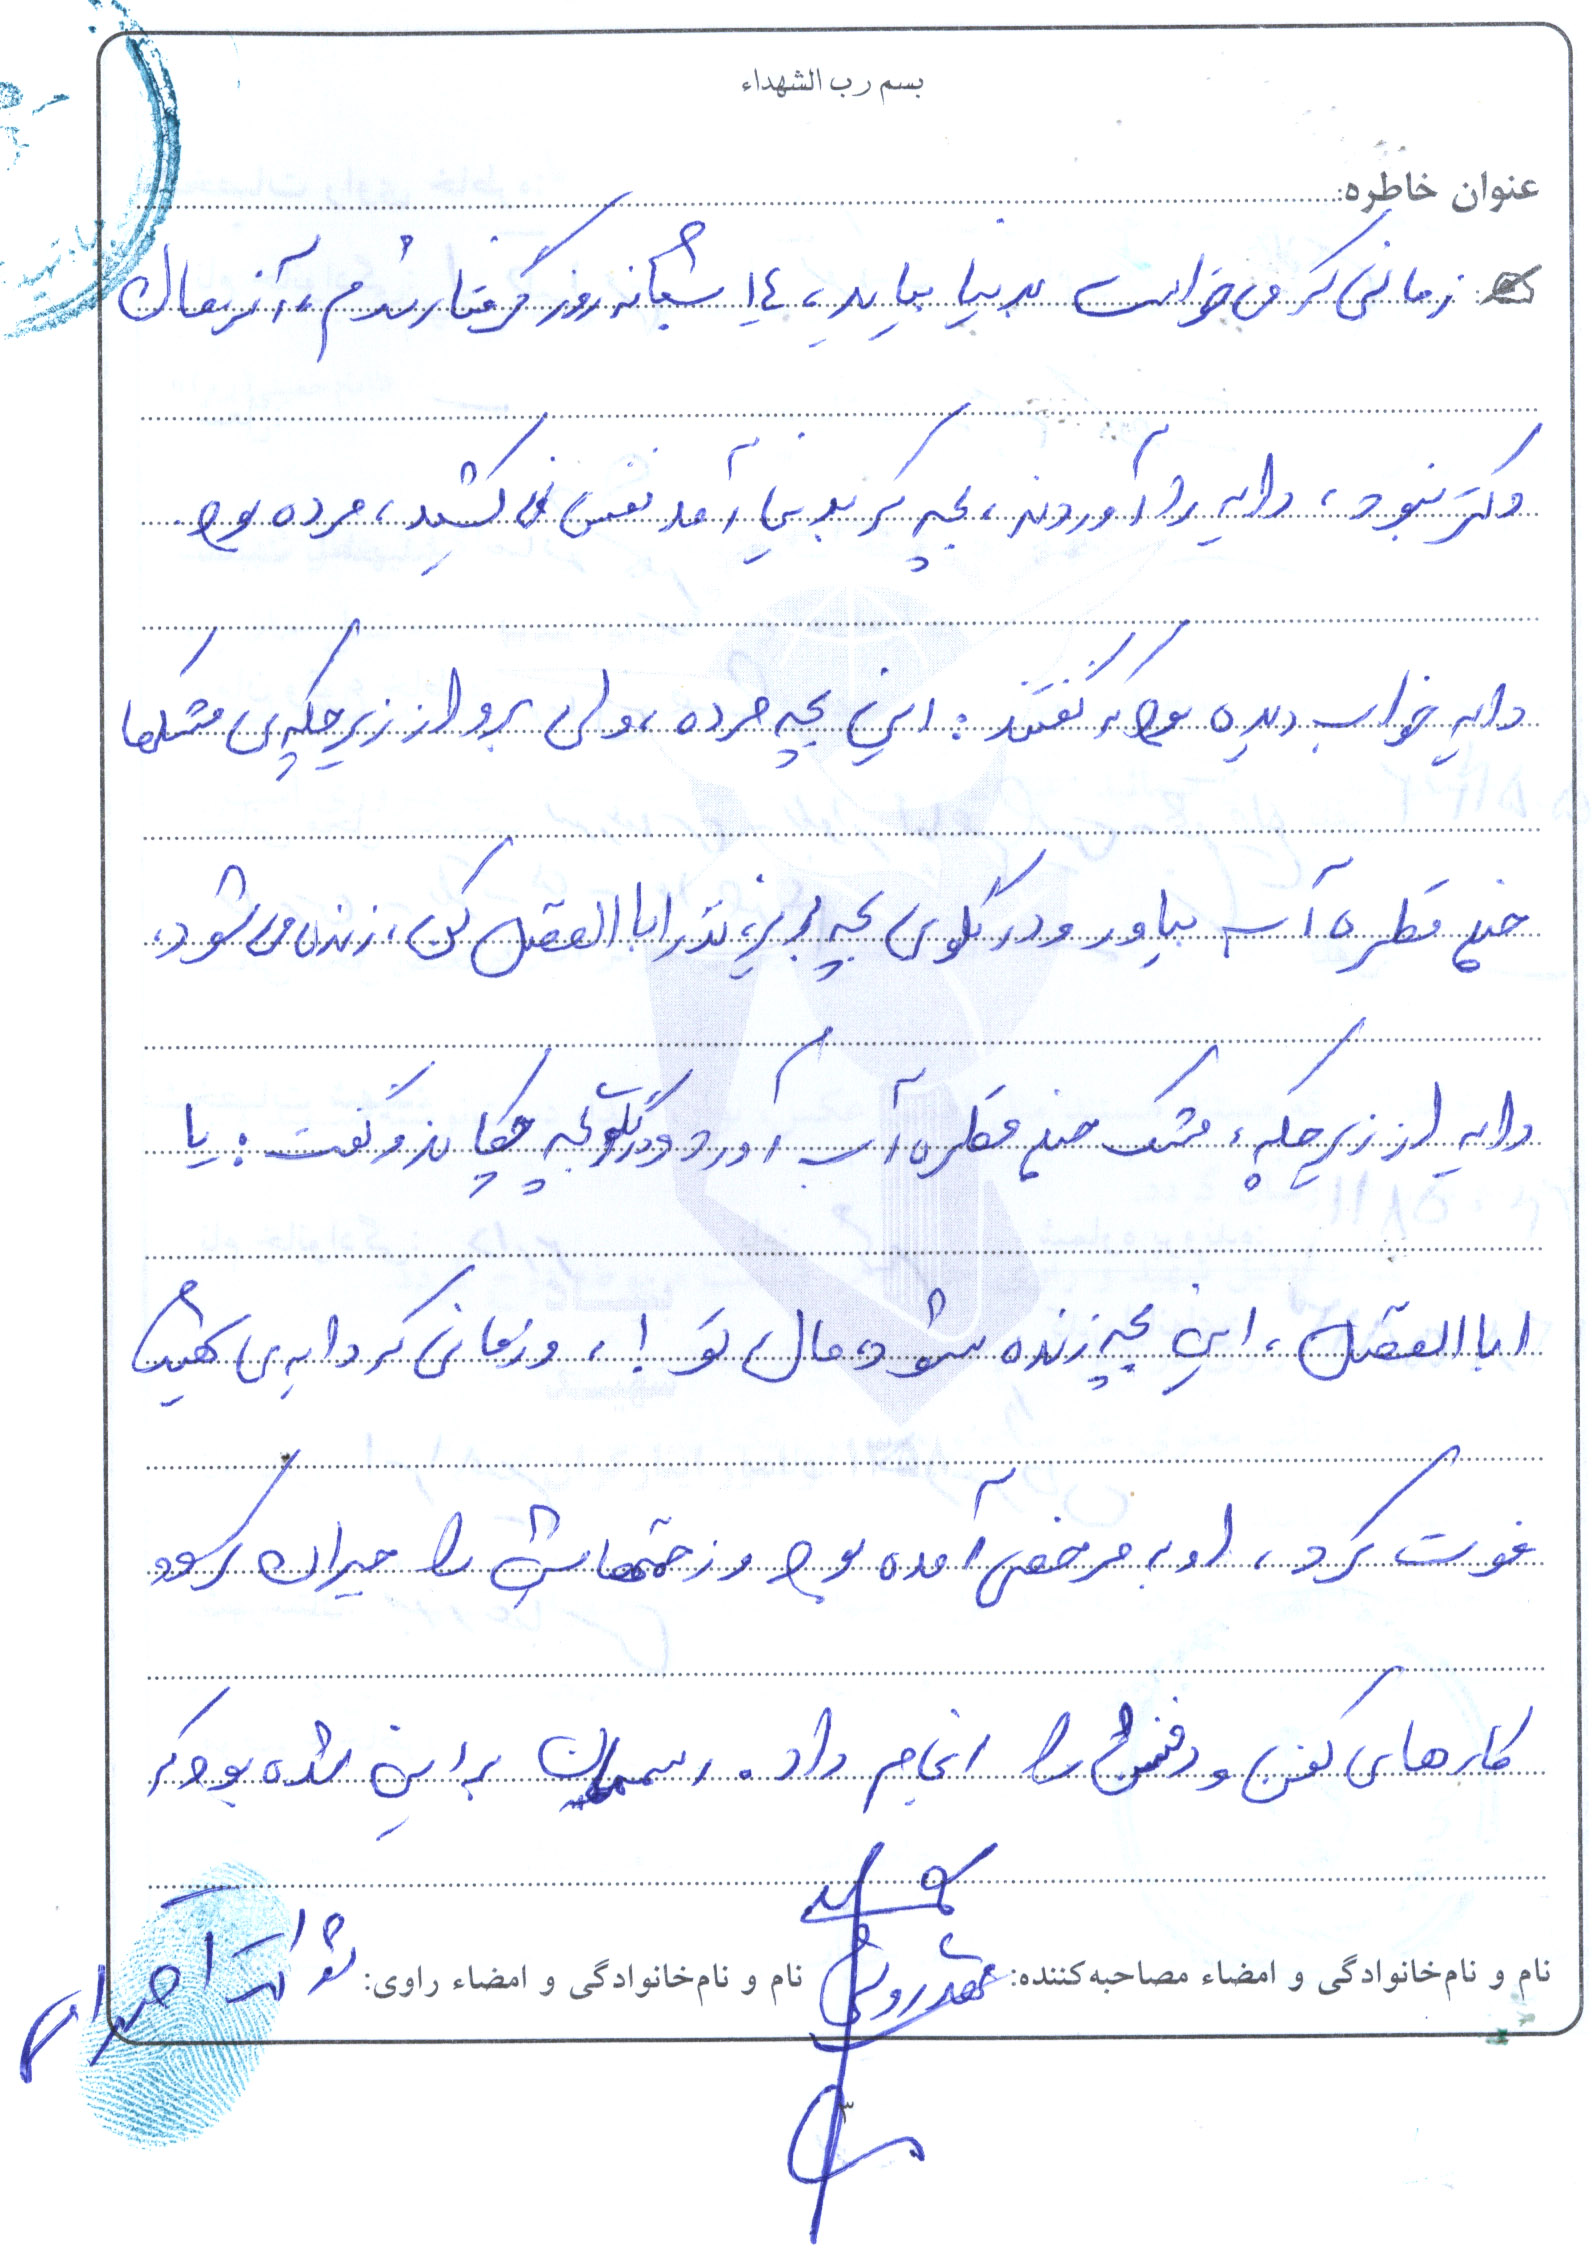 بسم رب الشهداء
عنوان خاطره:
زمانی که می‌خواست بدنیا بیاید، ۱٤ شبانه روز گرفتار شدم، آنزمان
دکتر نبود، دایه را آوردند، بچه که بدنیا آمد نفس نمی کشید، مرده بود.
دایه خواب دیده بود که گفتند: این بچه مرده، ولی برو از زیر چکه‌ی مشکها
چند قطره آب بیاور و در گلوی بچه بریز، نذر ابا الفضل کن، زنده می‌شود،
دایه از زیر چکهٔ مشک چند قطره آب آورد و در گلوی بچه چکاند و گفت: یا
ابا الفضل، این بچه زنده شود، مال تو!، و زمانی که دایه‌ی شهید
فوت کرد، او به مرخصی آمده بود و زحمتهایش را جبران کرد و
کارهای کفن و دفنش را انجام داد. رسممان به این شده بود که
نام و نام‌خانوادگی و امضاء مصاحبه‌کننده:
نام و نام‌خانوادگی و امضاء راوی:
۳